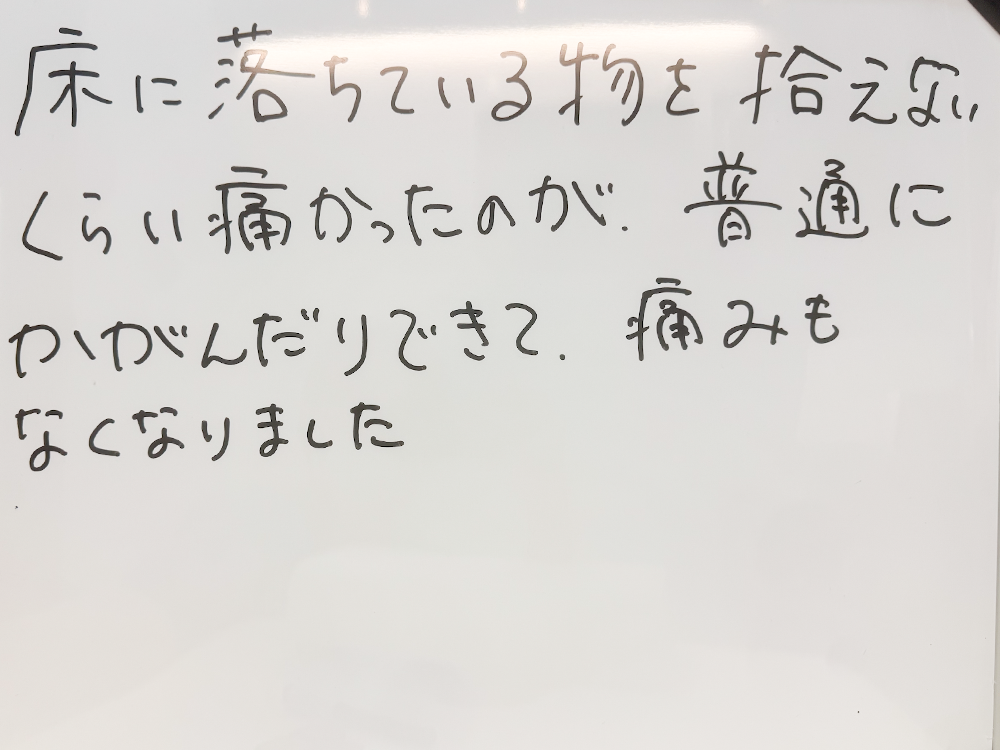 床に落ちている物を拾えない
くらい痛かったのが、普通に
かがんだりできて、痛みも
なくなりました